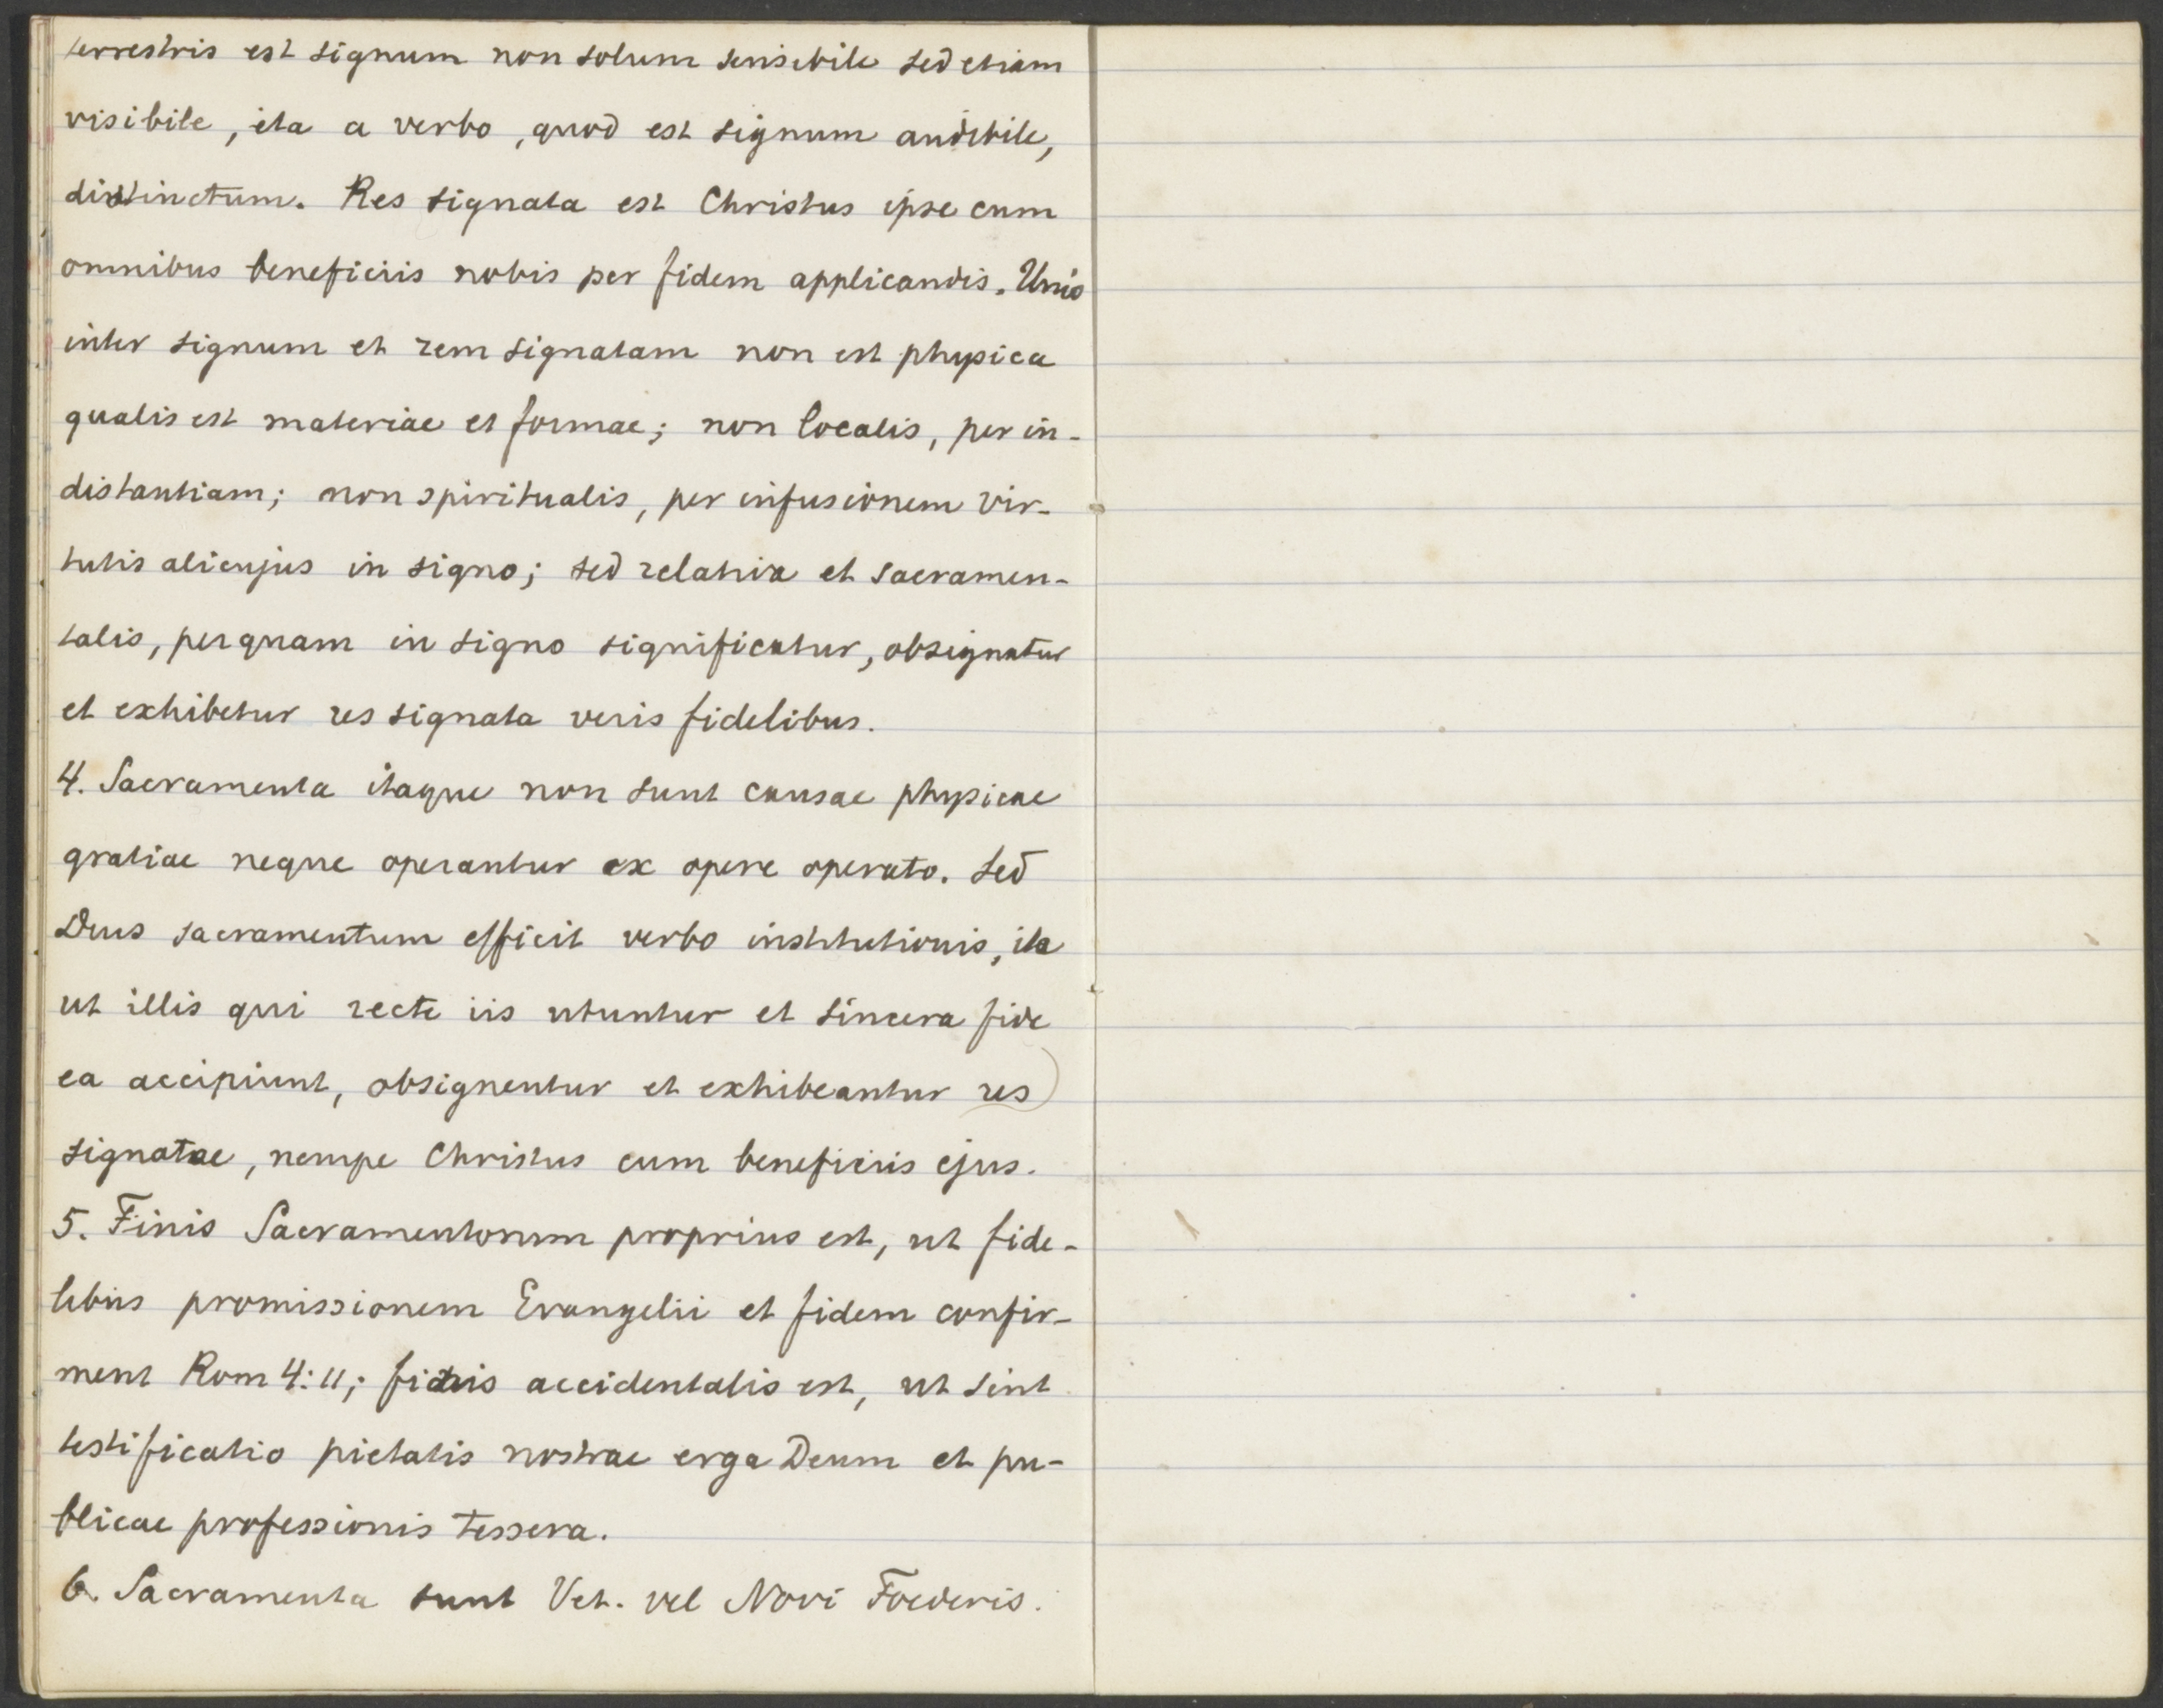 terrestris est signum non solum sensibile sed etiam
visibile, ita a verbo, quod est signum audibile,
distinctum. Res signata est Christus ipse cum
omnibus beneficiis nobis per fidem applicandis. Unio
inter signum et rem signatam non est physica
qualis est materiae et formae; non localis, per in-
distantiam; non spiritualis, per infusionem vir-
tutis alicujus in signo; sed relativa et sacramen-
talis, per quam in signo significatur, obsignatur
et exhibetur res signata veris fidelibus.
4. Sacramenta itaque non sunt causae physicae
gratiae neque operantur ex opere operato. Sed
Deus sacramentum efficit verbo institutionis, ita
ut illis qui recte iis utuntur et sincera fide
ea accipiunt, obsignentur et exhibeantur res
signatae, nempe Christus cum beneficiis ejus.
5. Finis Sacramentorum proprius est, ut fide-
libus promissionem Evangelii et fidem confir-
ment Rom 4:11; finis accidentalis est, ut sint
testificatio pietatis nostrae erga Deum et pu-
blicae professionis tessera.
6. Sacramenta sunt Vet. vel Novi Foederis.